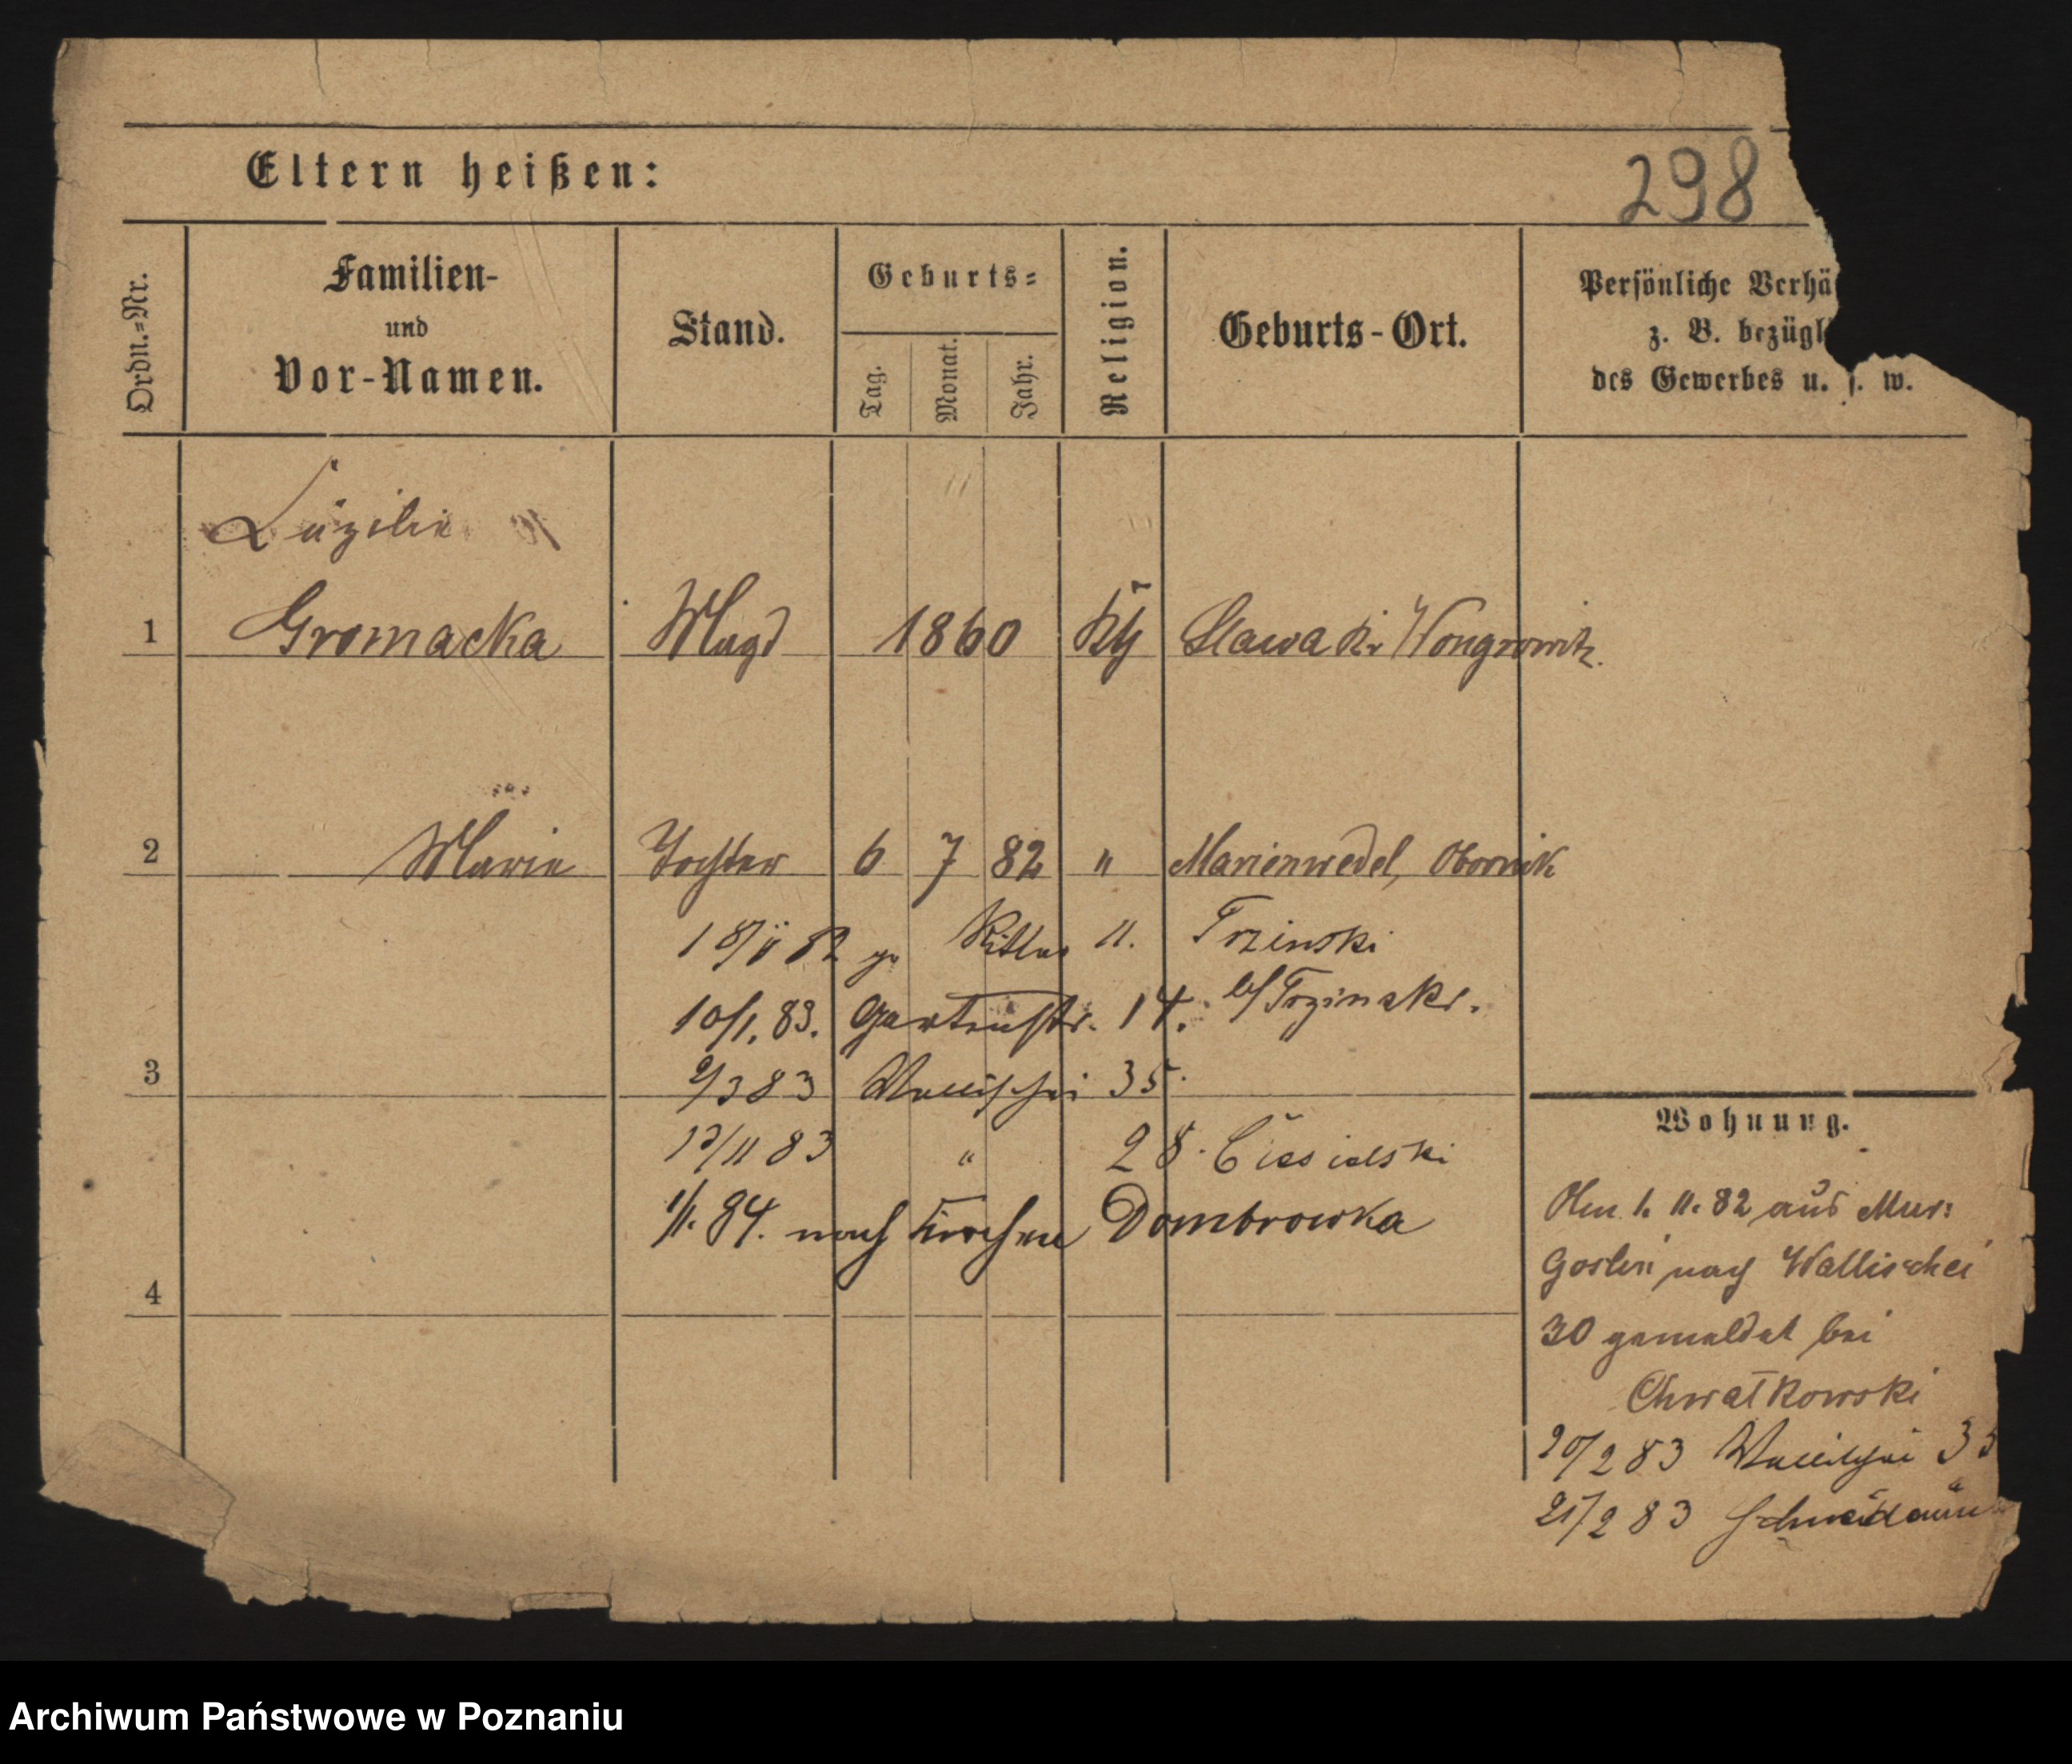 Eltern heißen:
298
Ordn.=Nr.
Familien-
und
Vor-Namen.
Stand.
Geburts=
Tag.
Monat.
Jahr.
Religion.
Geburts-Ort.
Persönliche Verhä
z. B. bezügl
des Gewerbes u. s. w.
1 Gromacka Magd 1860 Slawa Kr Wongrowitz.
2 Marie Tochter 6 7 82 " Marienwedel, Obornik
82 11. Trzinski
10/1. 83. Gartenstr. 14. b/ Trzinski.
3
2/3 83 Wallischei 35.
Wohnung.
/11 83 " 28. Ciesielski
1/1. 84. nach Dombrowka
Am 1. 11. 82 aus Mur:
Goslin nach Wallischei
4
30 gemeldet bei
Chwatkowski
20/2 83 Wallischei 35
21/2 83
Archiwum Państwowe w Poznaniu